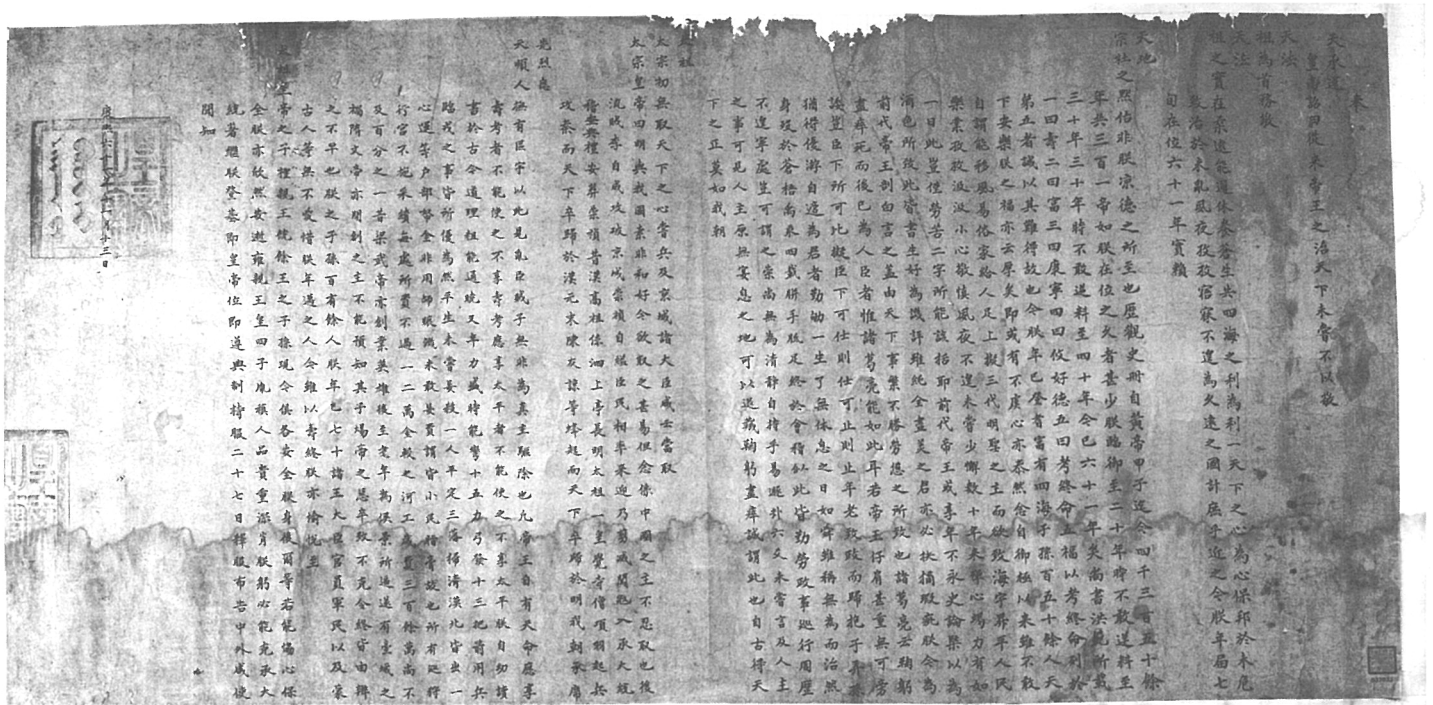 奉
天承運
皇帝詔曰從來帝王之治天下未嘗不以敬
天法
祖為首務敬
天法
祖之實在柔遠能邇休養蒼生共四海之利為利一天下之心為心保邦於未危
致治於未亂夙夜孜孜寤寐不遑為久遠之國計庶乎近之今朕年屆七
旬在位六十一年實賴
天地
宗社之默佑非朕涼德之所至也歷觀史冊自黃帝甲子迄今四千三百五十餘
年共三百一帝如朕在位之久者甚少朕臨御至二十年時不敢逆料至
三十年三十年時不敢逆料至四十年今已六十一年矣尚書洪範所載
一曰壽二曰富三曰康寧四曰攸好德五曰考終命五福以考終命列於
第五者誠以其難得故也今朕年已登耆富有四海子孫百五十餘人天
下安樂朕之福亦云厚矣即或有不虞心亦泰然念自御極以來雖不敢
自謂能移風易俗家給人足上擬三代明聖之主而欲致海宇昇平人民
樂業孜孜汲汲小心敬慎夙夜不遑未嘗少懈數十年來殫心竭力有如
一日此豈僅勞苦二字所能該括耶前代帝王或享年不永史論槩以為
酒色所致此皆書生好為譏評雖純全盡美之君亦必抉摘瑕疵朕今為
前代帝王剖白言之蓋由天下事繁不勝勞憊之所致也諸葛亮云鞠躬
盡瘁死而後已為人臣者惟諸葛亮能如此耳若帝王仔肩甚重無可旁
諉豈臣下所可比擬臣下可仕則仕可止則止年老致政而歸抱子弄孫
猶得優游自適為君者勤劬一生了無休息之日如舜雖稱無為而治然
身歿於蒼梧禹乘四載胼手胝足終於會稽似此皆勤勞政事巡行周歷
不遑寧處豈可謂之崇尚無為清靜自持乎易遯卦六爻未嘗言及人主
之事可見人主原無宴息之地可以退藏鞠躬盡瘁誠謂此也自古得天
下之正莫如我朝
太祖
太宗初無取天下之心嘗兵及京城諸大臣咸云當取
太宗皇帝曰明與我國素非和好今欲取之甚易但念係中國之主不忍取也後
流賊李自成攻破京城崇禎自縊臣民相率來迎乃剪滅闖寇入承大統
稽查典禮安葬崇禎昔漢高祖係泗上亭長明太祖一皇覺寺僧項羽起兵
攻秦而天下卒歸於漢元末陳友諒等蜂起而天下卒歸於明我朝承席
先烈應
天順人撫有區宇以此見亂臣賊子無非為真主驅除也凡帝王自有天命應享
壽考者不能使之不享壽考應享太平者不能使之不享太平朕自幼讀
書於古今道理粗能通曉又年力盛時能彎十五力弓發十三把箭用兵
臨戎之事皆所優為然平生未嘗妄殺一人平定三藩掃清漠北皆出一
心運籌戶部帑金非用師賑饑未敢妄費謂皆小民脂膏故也所有巡狩
行宮不施采繢每處所費不過一二萬金較之河工歲費三百餘萬尚不
及百分之一昔梁武帝亦創業英雄後至耄年為侯景所逼遂有臺城之
禍隋文帝亦開創之主不能預知其子煬帝之惡卒致不克令終皆由辨
之不早也朕之子孫百有餘人朕年已七十諸王大臣官員軍民以及蒙
古人等無不愛惜朕年邁之人今雖以壽終朕亦愉悅至
太祖皇帝之子禮親王饒餘王之子孫現今俱各安全朕身後爾等若能協心保
全朕亦欣然安逝雍親王皇四子胤禛人品貴重深肖朕躬必能克承大
統著繼朕登基即皇帝位即遵典制持服二十七日釋服布告中外咸使
聞知
康熙六十一年十一月十三日